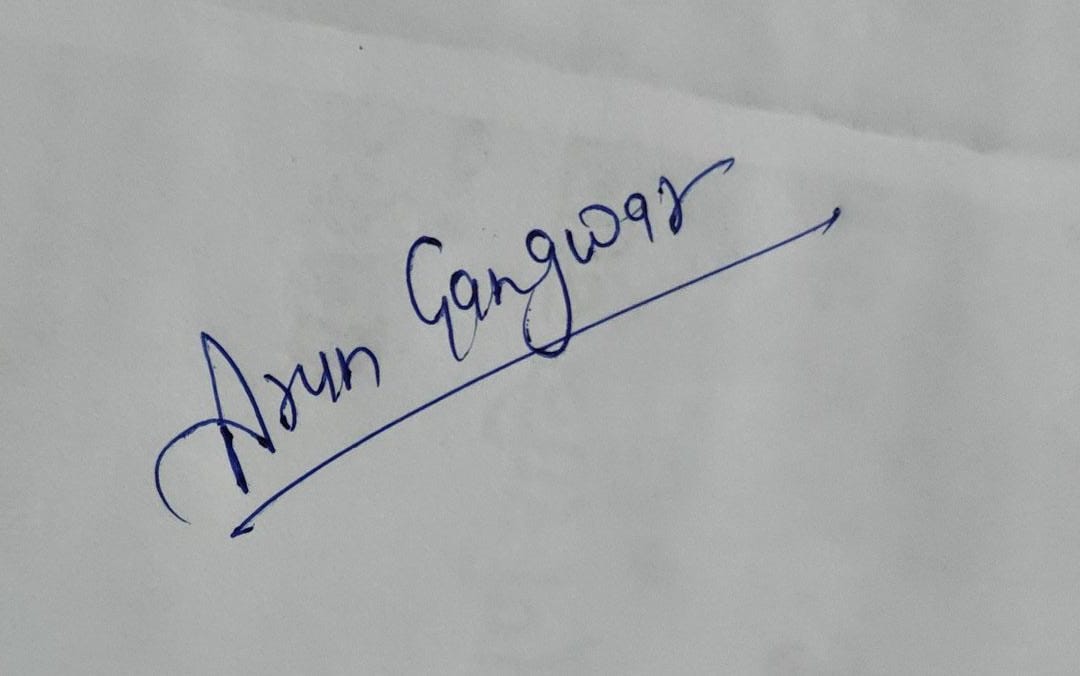 Arun Gangwar